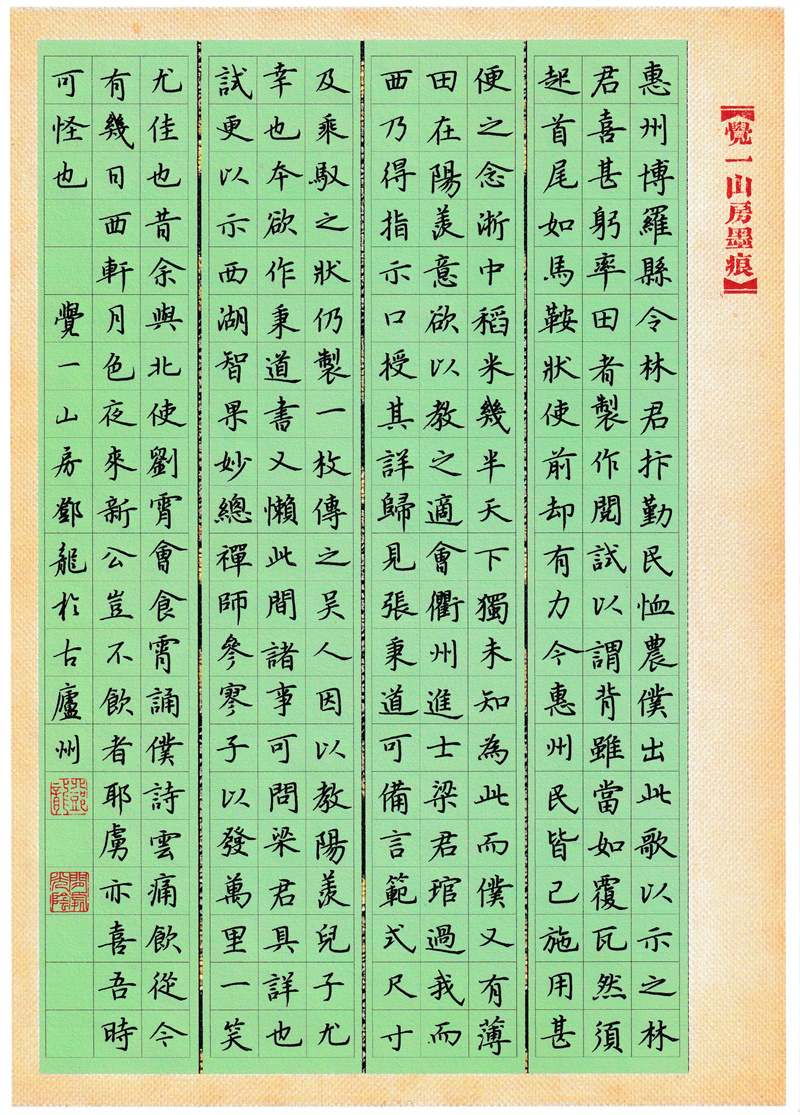 【覺一山房墨痕】
惠州博羅縣令林君抃勤民恤農僕出此歌以示之林
君喜甚躬率田者製作閱試以謂背雖當如覆瓦然須
起首尾如馬鞍狀使前却有力今惠州民皆已施用甚
便之念淅中稻米幾半天下獨未知為此而僕又有薄
田在陽羨意欲以教之適會衢州進士梁君琯過我而
西乃得指示口授其詳歸見張秉道可備言範式尺寸
及乘馭之狀仍製一枚傳之吴人因以教陽羨兒子尤
幸也本欲作秉道書又懶此間諸事可問梁君具詳也
試更以示西湖智果妙總禪師參寥子以發萬里一笑
尤佳也昔余與北使劉霄會食霄誦僕詩雲痛飲從今
有幾日西軒月色夜來新公豈不飲者耶虜亦喜吾時
可怪也 覺一山房鄧龍於古廬州